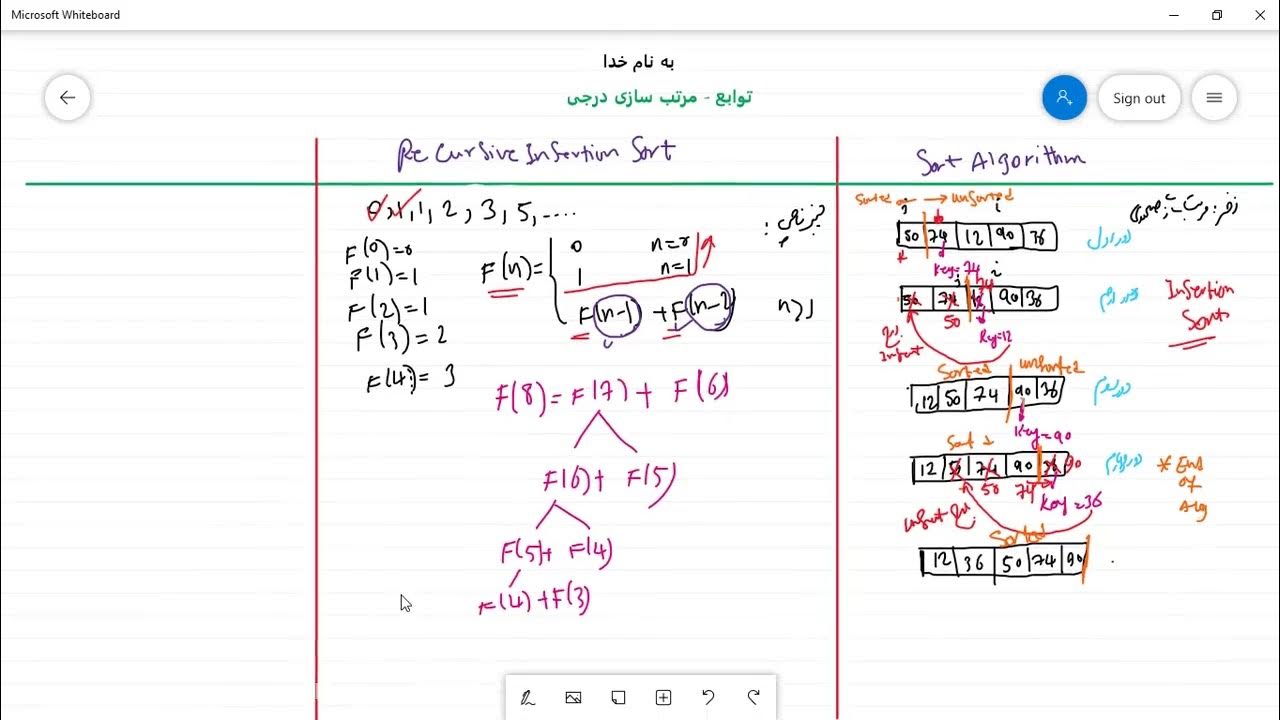 Microsoft Whiteboard
به نام خدا
توابع - مرتب سازی درجی
Sign out
Recursive Insertion Sort
0, 1, 1, 2, 3, 5, ....
F(0)=0
F(1)=1
F(2)=1
F(3)=2
F(4)= 3
F(n)=
0 n=0
1 n=1
F(n-1) + F(n-2) n>1
F(8)= F(7)+ F(6)
F(6)+ F(5)
F(5)+ F(4)
F(4)+F(3)
Sort Algorithm
Sorted unSorted
j i
50 74 12 90 36
دور اول
Key=74
i
74
j
50 74 12 90 36
دور دوم
50
Key=12
Insert
Insertion
Sort
Sorted unSorted
12 50 74 90 36
دور سوم
Key=90
Sort
12 50 74 90 36 90
دور چهارم
50 74
Key=36
* End
of
Alg
insert
Sorted
12 36 50 74 90